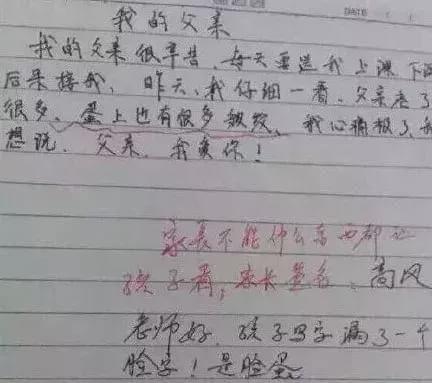 我的父亲
我的父亲很辛苦 每天要送我上课 下课
后来接我, 昨天, 我仔细一看, 父亲老了
很多, 蛋上也有很多皱纹, 我心痛极了, 我
想说, 父亲, 我爱你!
家长不能什么东西都让
孩子看, 家长签名: 高风
老师好, 孩子写字漏了一个
脸字! 是脸蛋